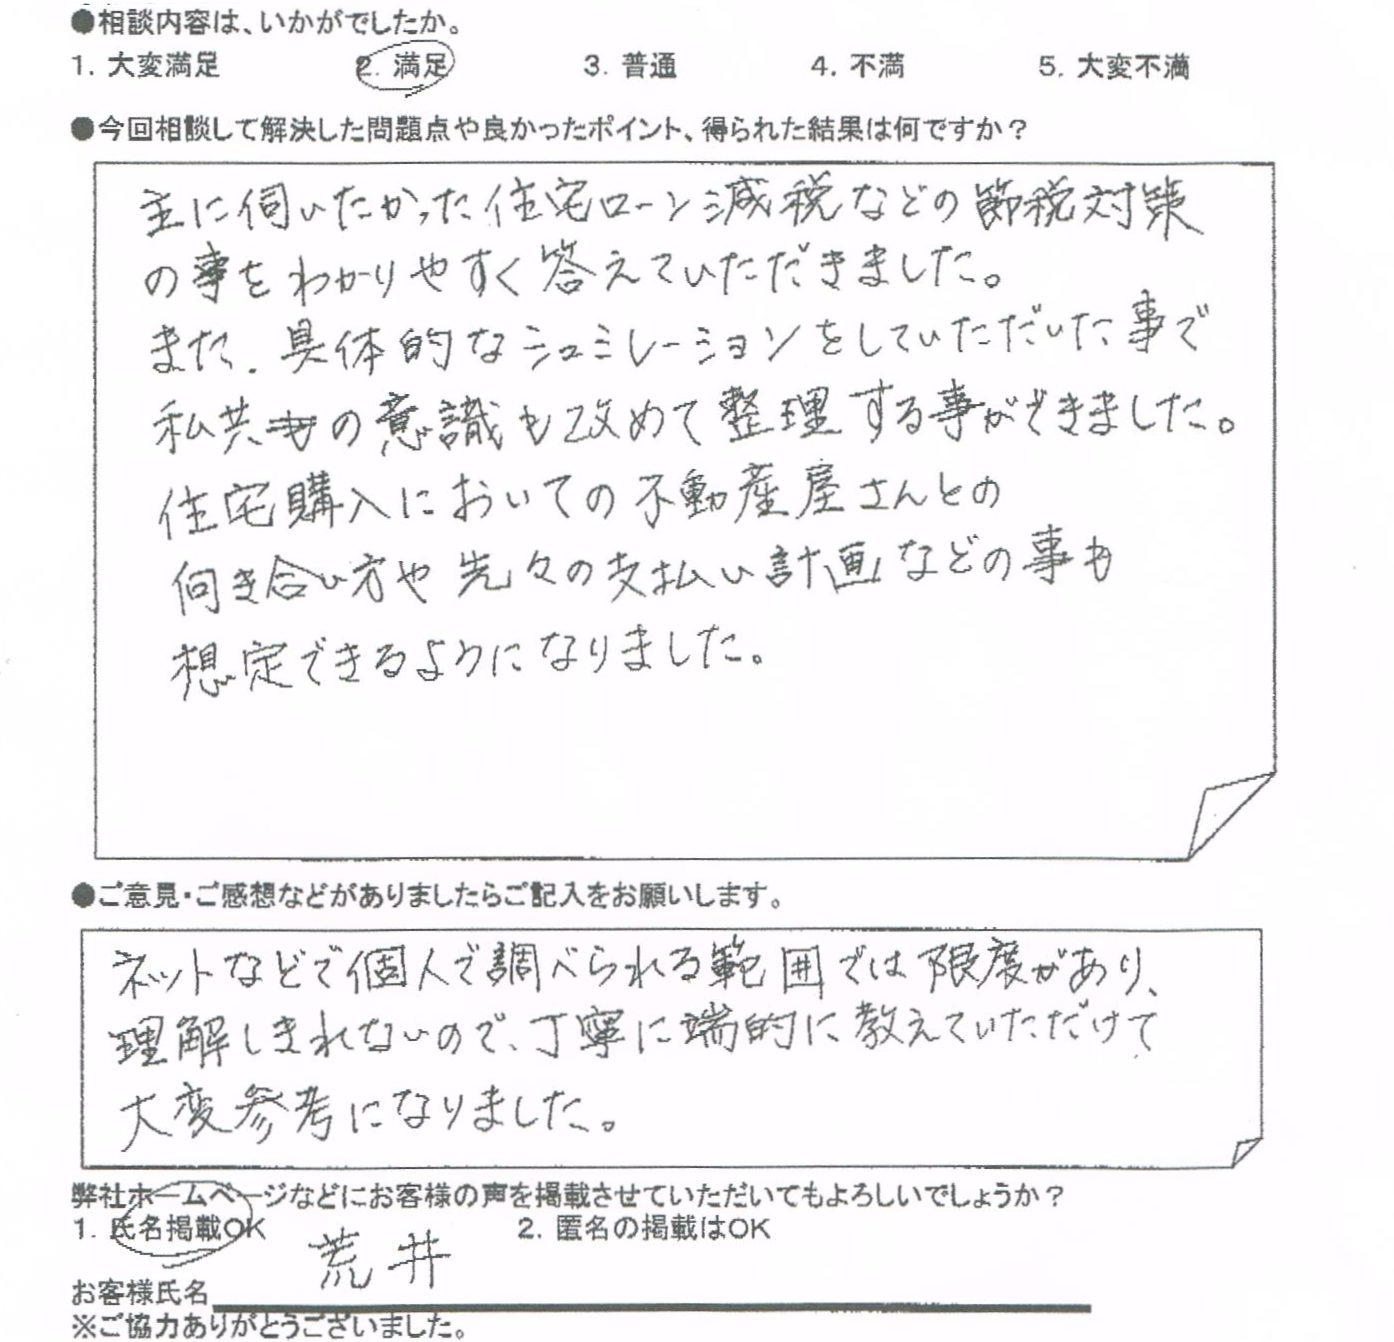 ●相談内容は、いかがでしたか。
1. 大変満足 2. 満足 3. 普通 4. 不満 5. 大変不満
●今回相談して解決した問題点や良かったポイント、得られた結果は何ですか？
主に伺いたかった住宅ローン減税などの節税対策
の事をわかりやすく答えていただきました。
また、具体的なシュミレーションをしていただいた事で
私共の意識も改めて整理する事ができました。
住宅購入においての不動産屋さんとの
向き合い方や先々の支払い計画などの事も
想定できるようになりました。
●ご意見・ご感想などがありましたらご記入をお願いします。
ネットなどで個人で調べられる範囲では限度があり、
理解しきれないので、丁寧に端的に教えていただけて
大変参考になりました。
弊社ホームページなどにお客様の声を掲載させていただいてもよろしいでしょうか？
1. 氏名掲載OK 2. 匿名の掲載はOK
荒井
お客様氏名
※ご協力ありがとうございました。